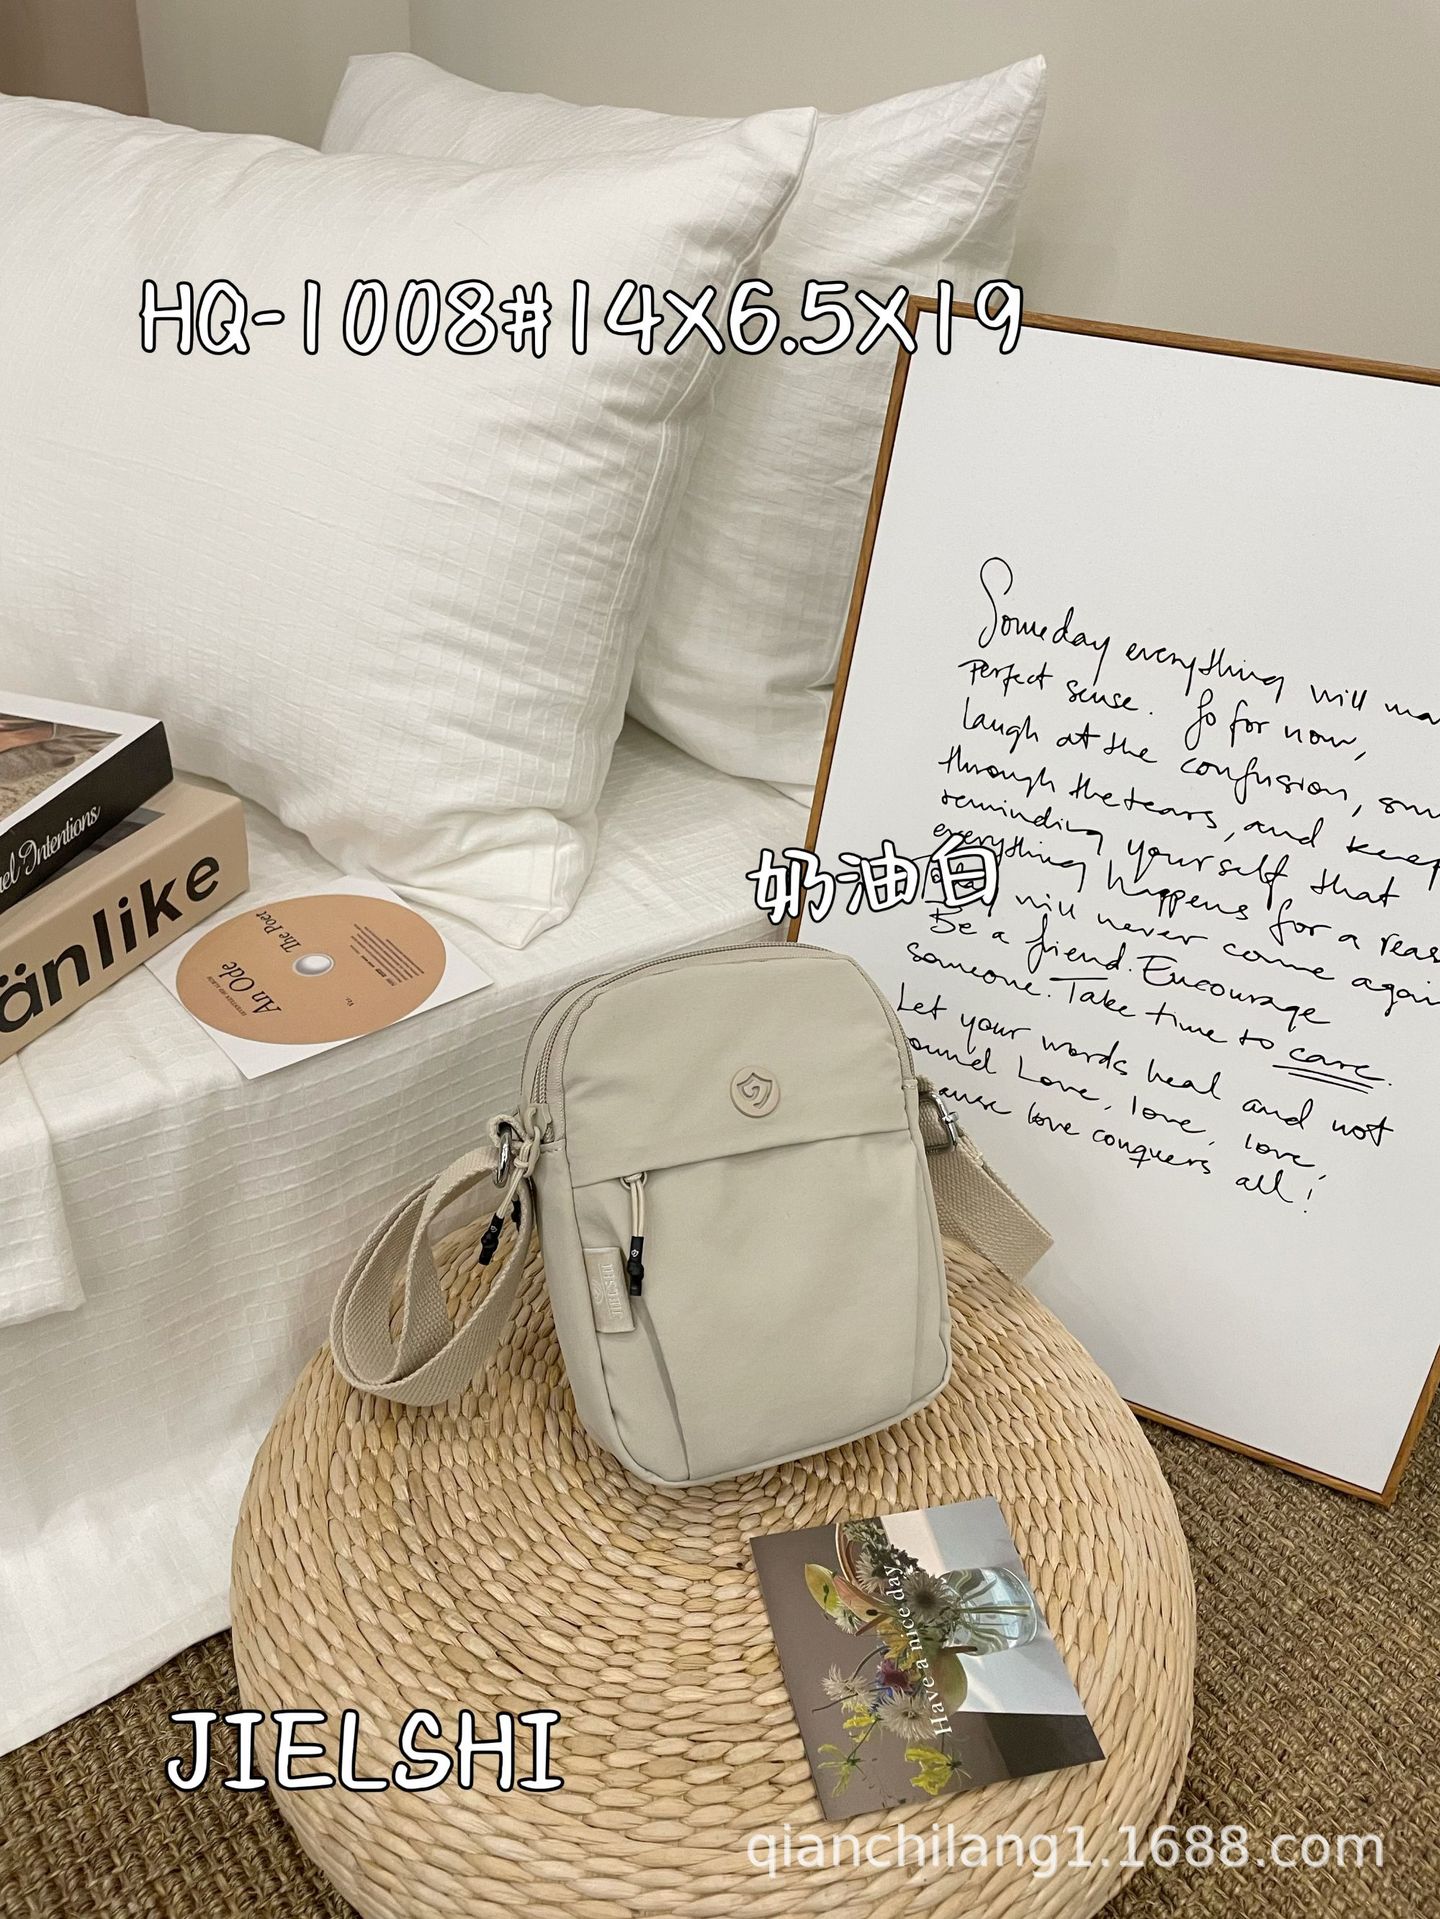 HQ-1008#14X6.5X19
Someday everything will ma
perfect sense. So for now,
laugh at the confusion, sm
through the tears, and keep
reminding yourself that
everything happens for a reas
will never come again
Be a friend. Encourage
someone. Take time to care.
Let your words heal and not
ound Love, love, love,
ause love conquers all!
奶油白
el Intentions
änlike
An Ode
The Poet
JIELSHI
Have a nice day
JIELSHI
qianchilang1.1688.com